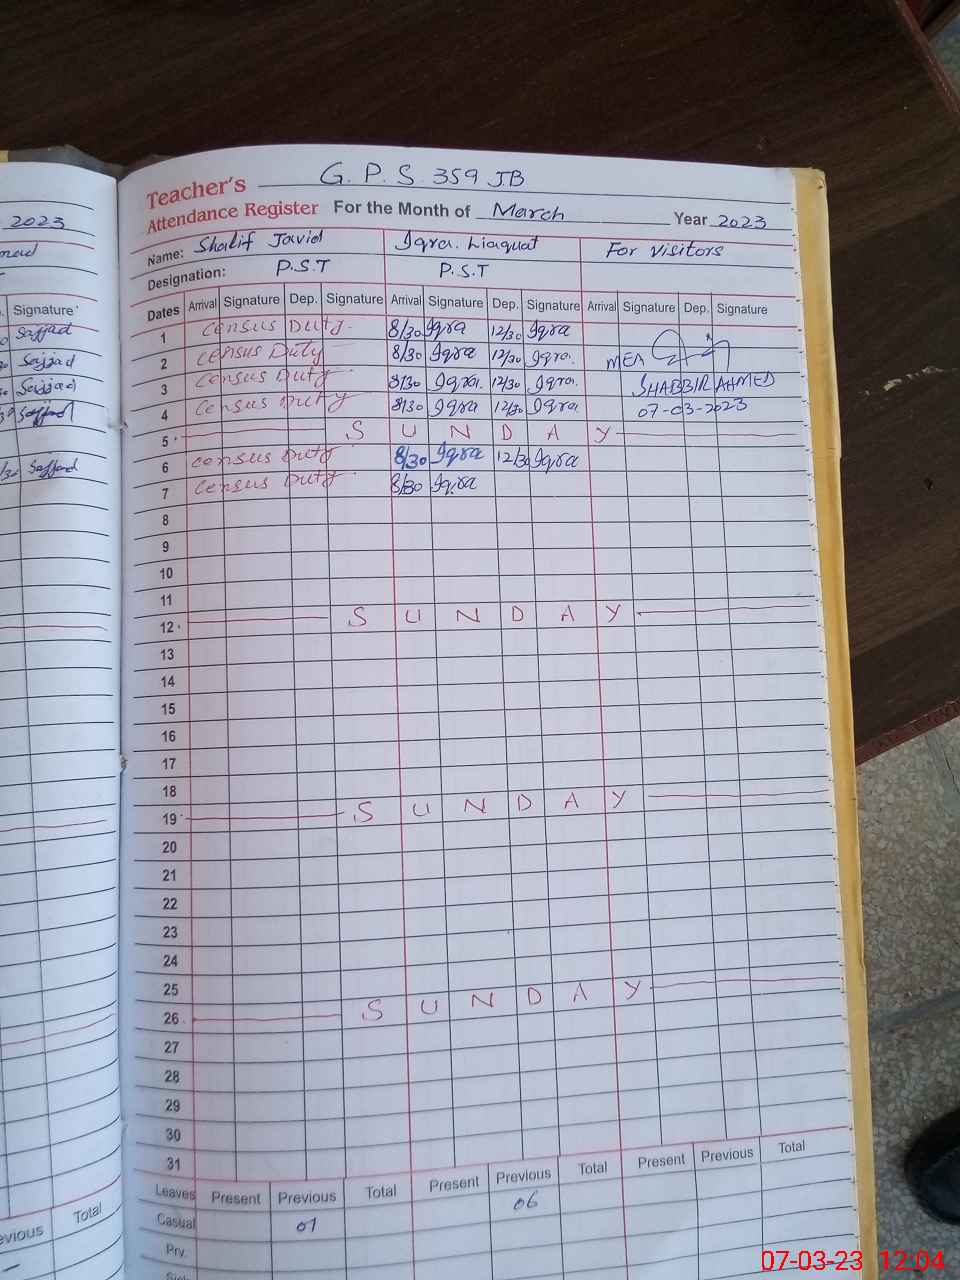 2023
Signature
Sajjad
Sajjad
Sajjad
Sajjad
Sajjad
Total
Teacher's G. P. S. 359 JB
Attendance Register For the Month of March Year 2023
Name: Shalif Javid Iqra. Liaquat For Visitors
Designation: P.S.T P.S.T
Dates Arrival Signature Dep. Signature Arrival Signature Dep. Signature Arrival Signature Dep. Signature
1 Census Duty. 8/30 Iqra 12/30 Iqra
2 Census Duty 8/30 Iqra 12/30 Iqra. MEA
3 Census Duty 8/30 Iqra. 12/30 Iqra. SHABBIR AHMED
4 Census Duty 8/30 Iqra 12/30 Iqra 07-03-2023
5 S U N D A Y
6 Census Duty 8/30 Iqra 12/30 Iqra
7 Census Duty 8/30 Iqra
8
9
10
11
12 S U N D A Y
13
14
15
16
17
18
19 S U N D A Y
20
21
22
23
24
25
26 S U N D A Y
27
28
29
30
31
Leaves Present Previous Total Present Previous Total Present Previous Total
Casual 01 06
Prv.
07-03-23 12:04